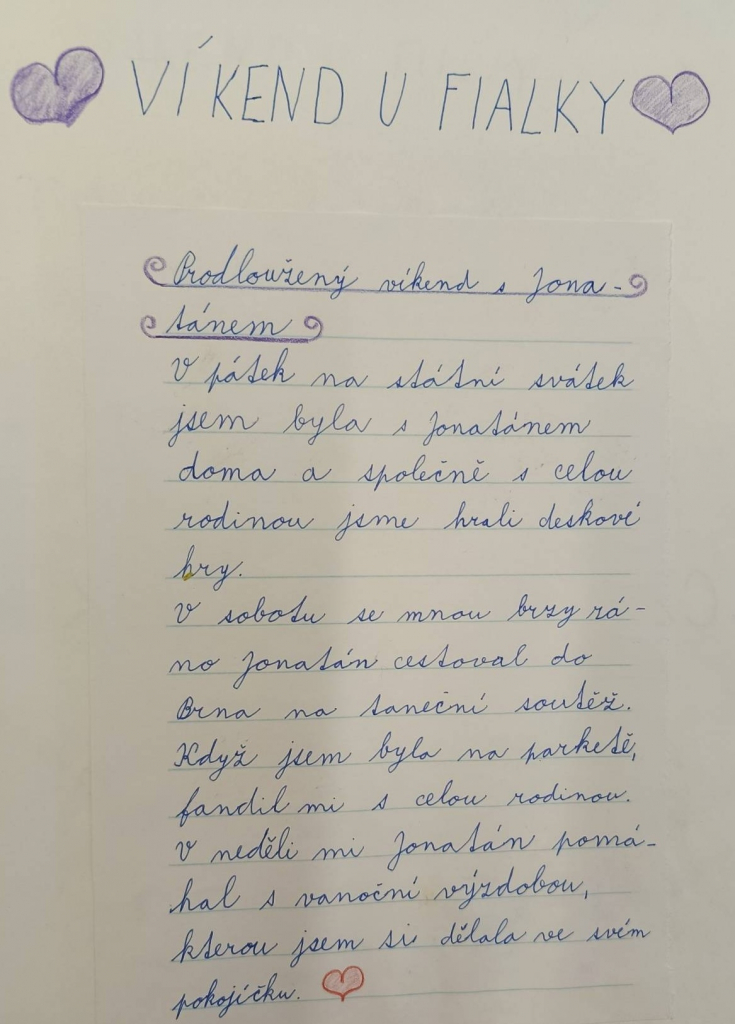 VÍKEND U FIALKY
Prodloužený víkend s Jona-
tánem
V pátek na státní svátek
jsem byla s Jonatánem
doma a společně s celou
rodinou jsme hrali deskové
hry.
V sobotu se mnou brzy rá-
no Jonatán cestoval do
Brna na taneční soutěž.
Když jsem byla na parketě,
fandil mi s celou rodinou.
V neděli mi Jonatán pomá-
hal s vanoční výzdobou,
kterou jsem si dělala ve svém
pokojíčku.